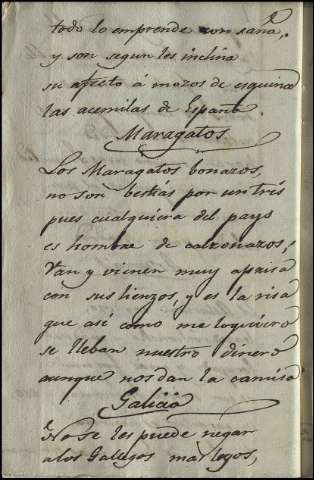 todo lo emprende con sana,
y son segun les inclina
su afecto á mozos de esquina
las acemilas de España.
Maragatos
Los Maragatos bonazos,
no son bestias por un tris
pues cualquiera del pays
es hombre de calzonazos,
Van y vienen muy aprisa
con sus lienzos, y es la risa
que asi como me lo quiero
se lleban nuestro dinero
aunque nos dan la camisa
Galicia
No se les puede negar
a los Gallegos